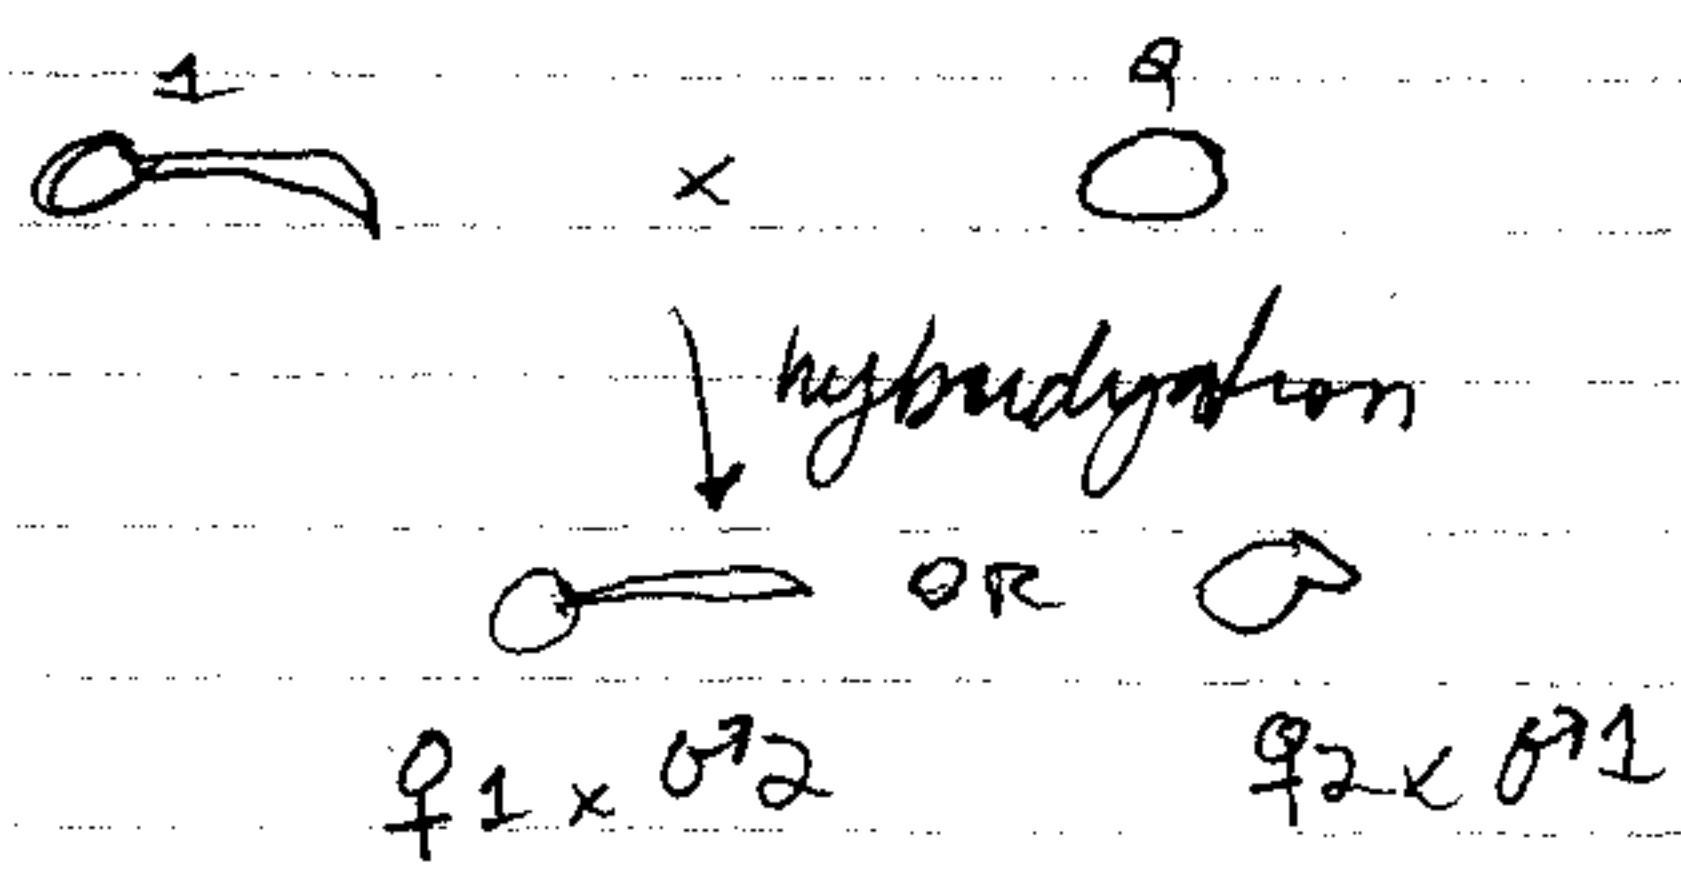 1 × 2
hybridization
OR
♀1 × ♂2 ♀2 × ♂1